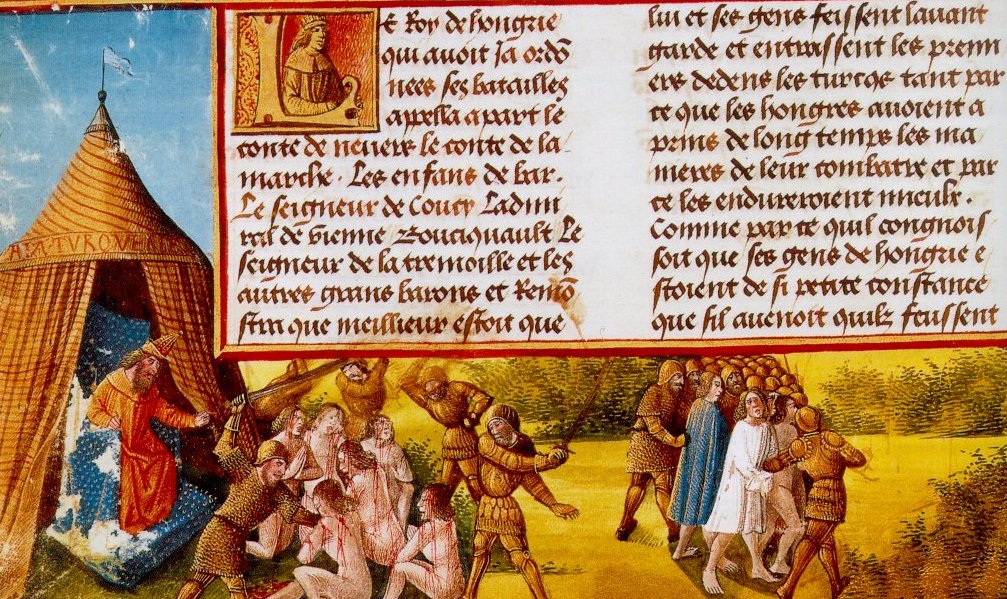 Le Roy de hongrie
qui auoit ja ordō
nees ses batailles
appella a part le
conte de neuers le conte de la
marche. Les enfans de bar.
Le seigneur de Coucy Ladmi
ral de vienne Bouciquault Le
seigneur de la tremoille et les
autres grans barons et Remō
stra que meillieur estoit que
lui et ses gens feissent lauant
garde et entrassent les premi
ers dedens les turcqs tant par
ce que les hongres auoient a
prins de long temps les ma
nieres de leur combatre et par
ce les endureroient mieulx.
Comme par ce quil congnois
soit que ses gens de hongrie e
stoient de si petite constance
que sil auenoit quilz feussent